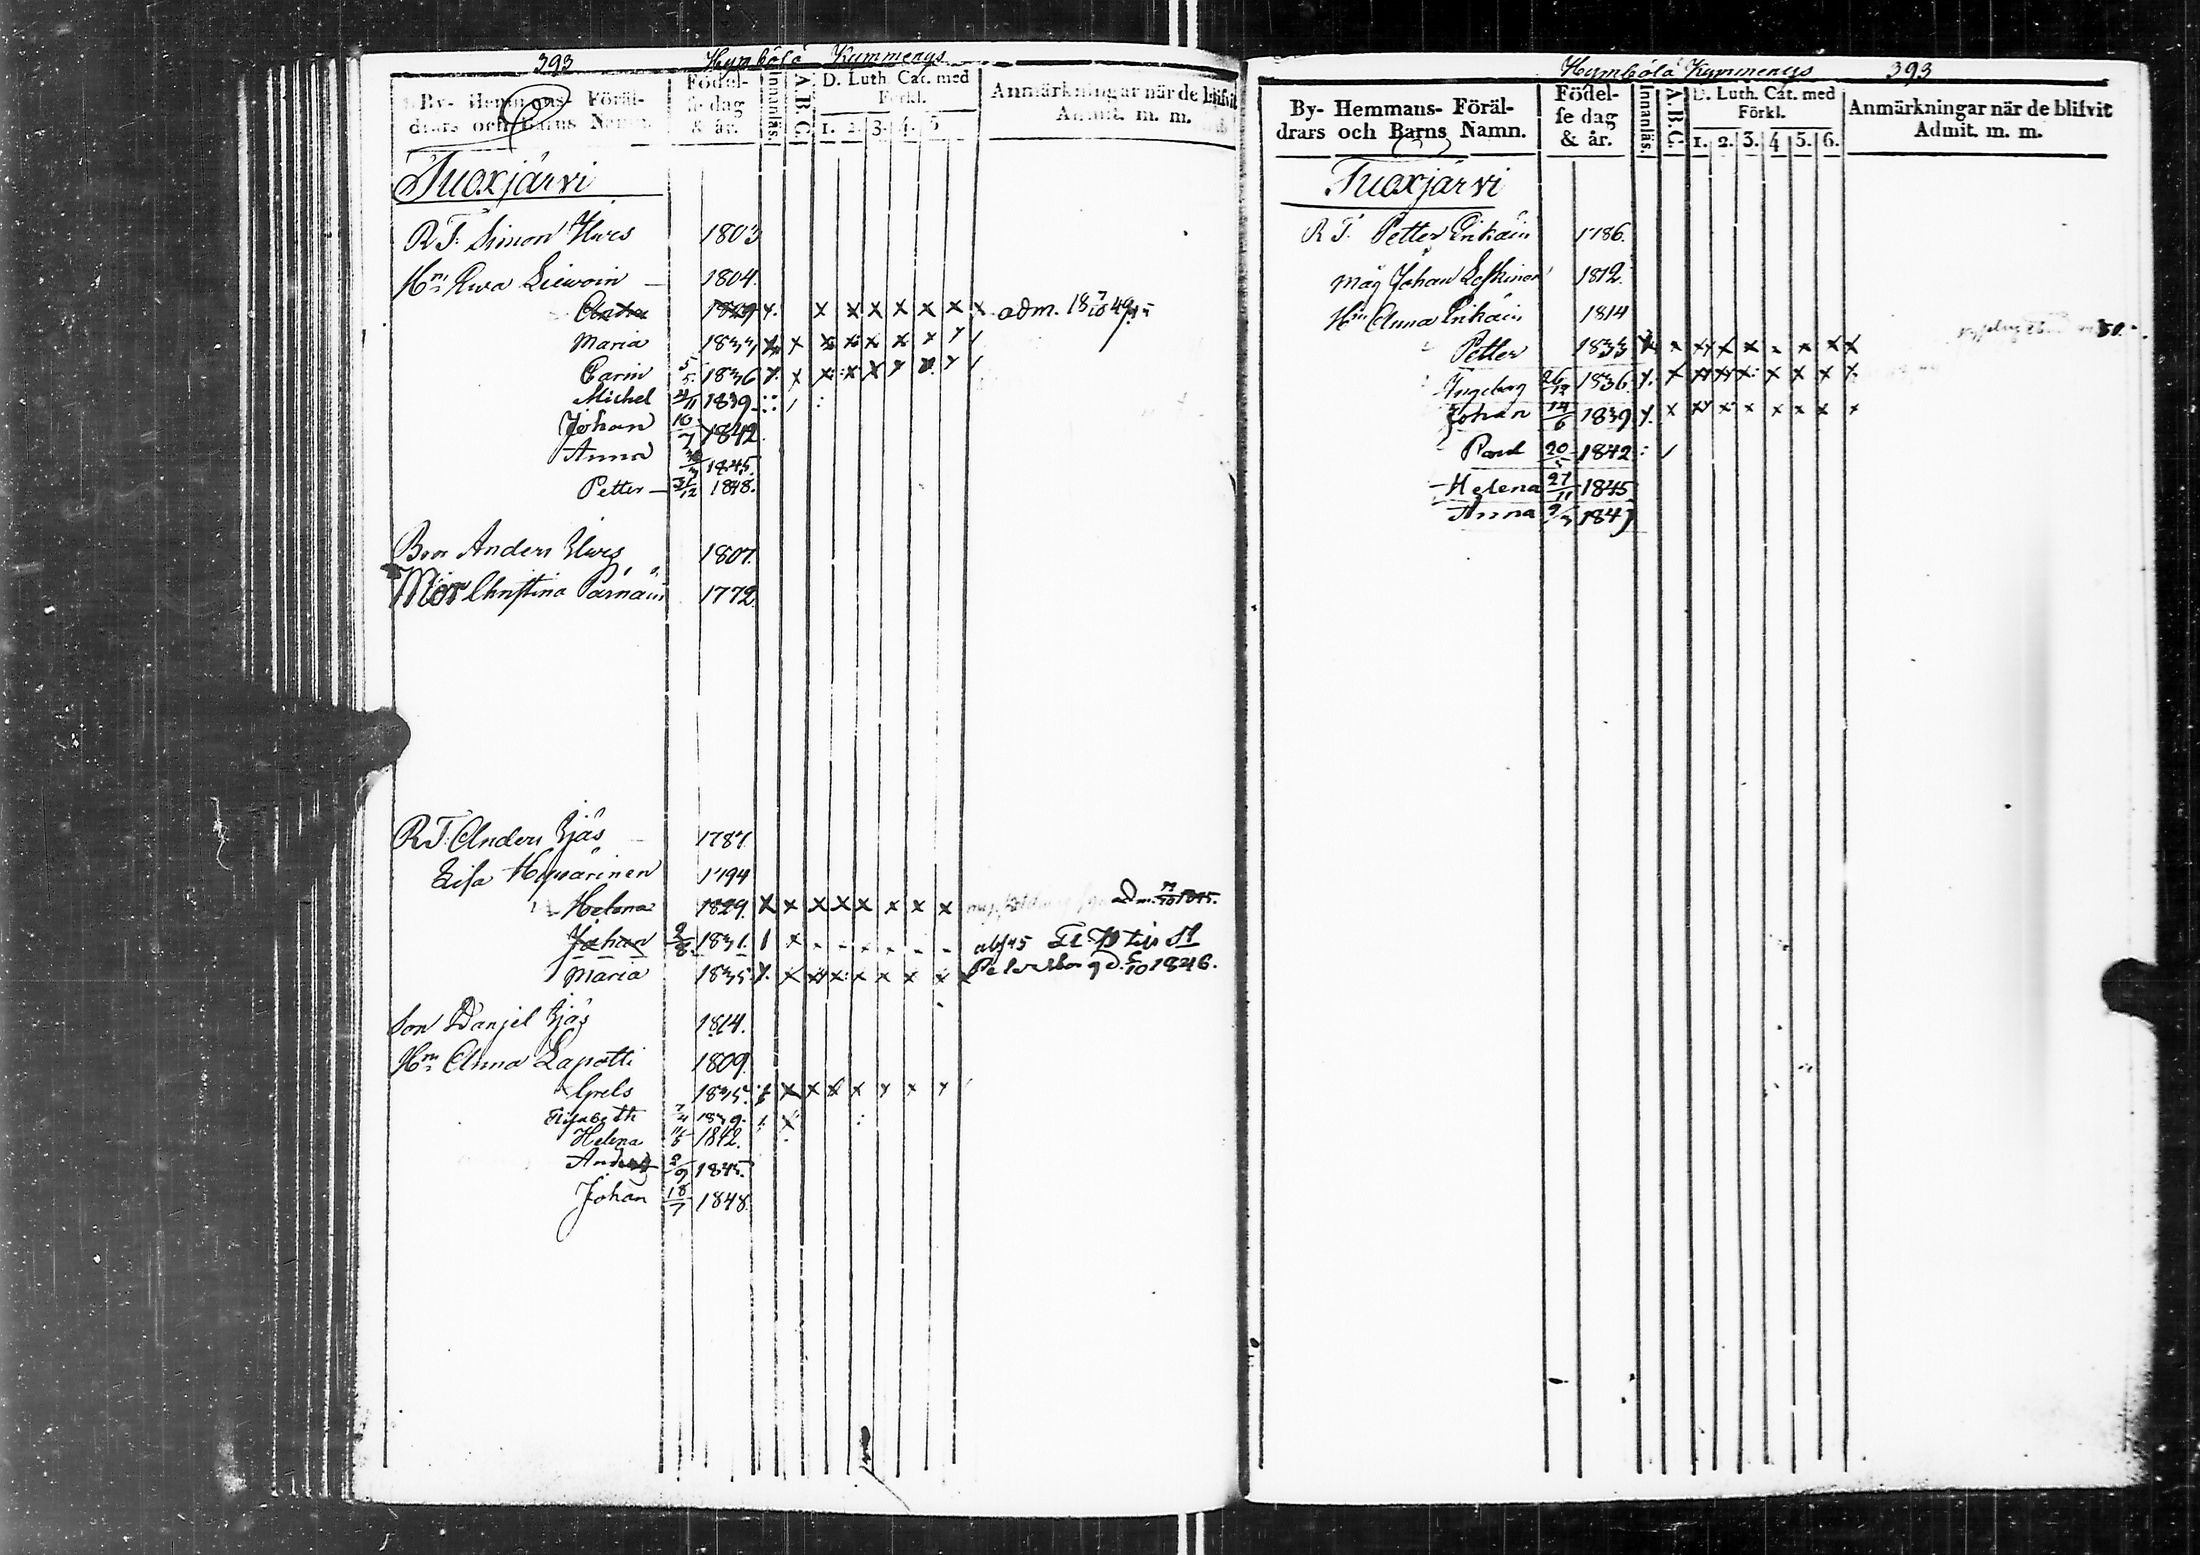 393 Hymbölä Kymmenys
By- Hemmans- Föräl-
drars och Barns Namn.
Födel-
se dag
& år.
Innanläs.
A.B.C.
D. Luth. Cat. med
Förkl.
1. 2. 3. 4. 5
Anmärkningar när de blifvit
Admit. m. m.
Tuoxjärvi
R.T. Simon Hves 1803
Hn. Ewa Liewoin 1804.
1829 x. x x x x x x x adm. 18 7/10 49
Maria 1833
Carin 5/5 1836
Michel 1839
Johan 10/7 1842
Anna 1845.
Petter 31/12 1848.
Bror Anders 1807.
Mor Christina Pärnäin 1772
R.T. Anders 1787
Lisa Hyvärinen 1794
Helena 1829. x x x x x x x x adm. 1845.
Johan 2/8 1831.
Petersborg d. 1846.
Maria 1835
Son Danjel 1814.
Hn. Anna Lapatti 1809.
Grels 1835
Elisabeth 1839
Helena 1842.
Anders 2/9 1845
Johan 18/7 1848
Hymbölä Kymmenys 393
By- Hemmans- Föräl-
drars och Barns Namn.
Födel-
se dag
& år.
Innanläs.
A.B.C.
D. Luth. Cat. med
Förkl.
1. 2. 3. 4 5. 6.
Anmärkningar när de blifvit
Admit. m. m.
Tuoxjärvi
R T. Petter Inkäin 1786.
Måg Johan Leskinen 1812.
Hn Anna Inkäin 1814
Petter 1833 50.
Ingeborg 26/12 1836
Johan 14/6 1839
Paul 20/5 1842
Helena 27/11 1845
Anna 9/3 1849